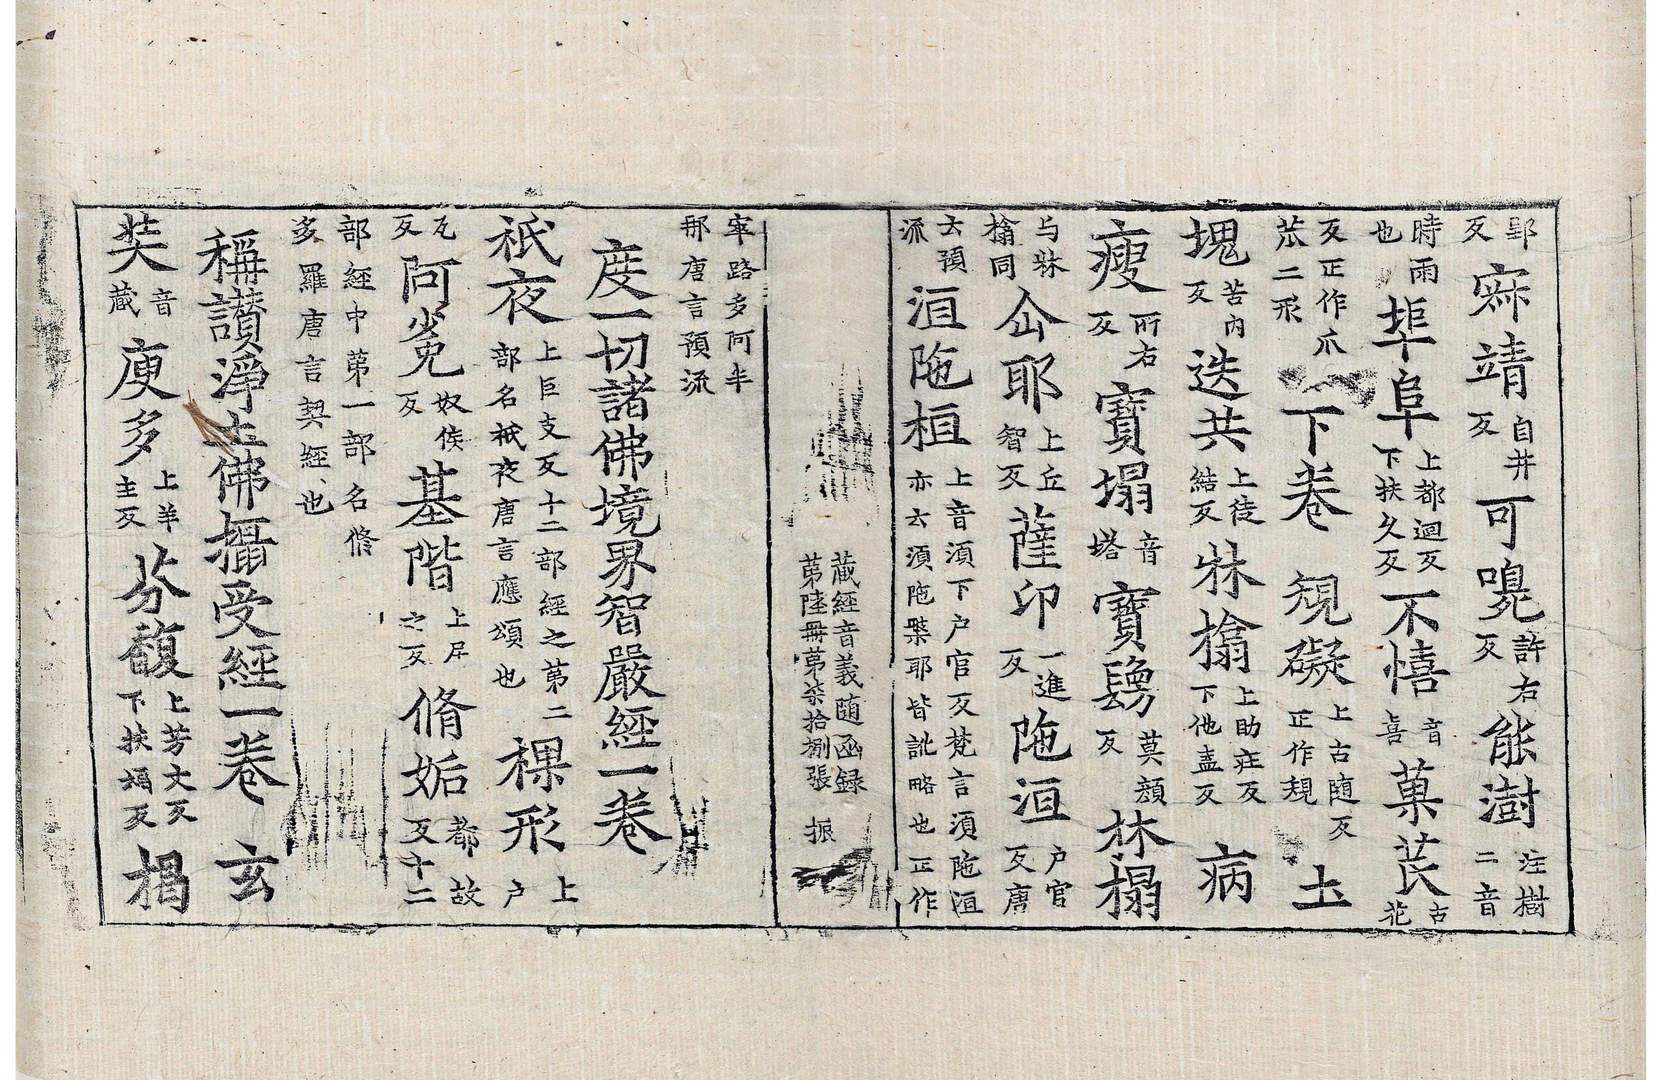 郢反寐靖自井反可㗛許右反能澍注樹二音
時雨也埠阜上都迴反下扶久反不憘音喜菓苂古花
反正作爪苽二形下卷䂓礙上古随反正作規𡈽
塊苦内反迭共上徒結反牀搶上助庄反下他盍反病
瘦所右反寶塌音塔寶㔸莫顔反林榻
与牀搨同㕘耶上丘智反薩卬一進反陁洹户官反唐
云預流洹陁桓上音湏下户官反梵言湏陁洹亦云湏陁槃耶皆訛略也正作
藏經音義随函録第陸冊第柒拾捌張 振
窣路多阿半那唐言預流
度一切諸佛境界智嚴經一卷
祇夜上巨支反十二部經之第二部名祇夜唐言應頌也祼形上户
瓦反阿㝹奴侯反基階上居之反脩妬都故反十二
部經中第一部名脩多羅唐言契經也
稱讃淨土佛攝受經一卷 玄
奘音藏庾多上羊主反芬馥上芳文反下扶福反搨